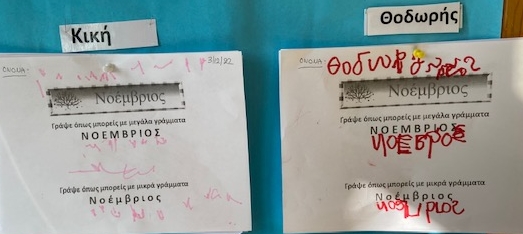 Κική
ΟΝΟΜΑ:
3/12/22
Νοέμβριος
Γράψε όπως μπορείς με μεγάλα γράμματα
ΝΟΕΜΒΡΙΟΣ
Γράψε όπως μπορείς με μικρά γράμματα
Νοέμβριος
Θοδωρής
ΟΝΟΜΑ:
Νοέμβριος
Γράψε όπως μπορείς με μεγάλα γράμματα
ΝΟΕΜΒΡΙΟΣ
Γράψε όπως μπορείς με μικρά γράμματα
Νοέμβριος